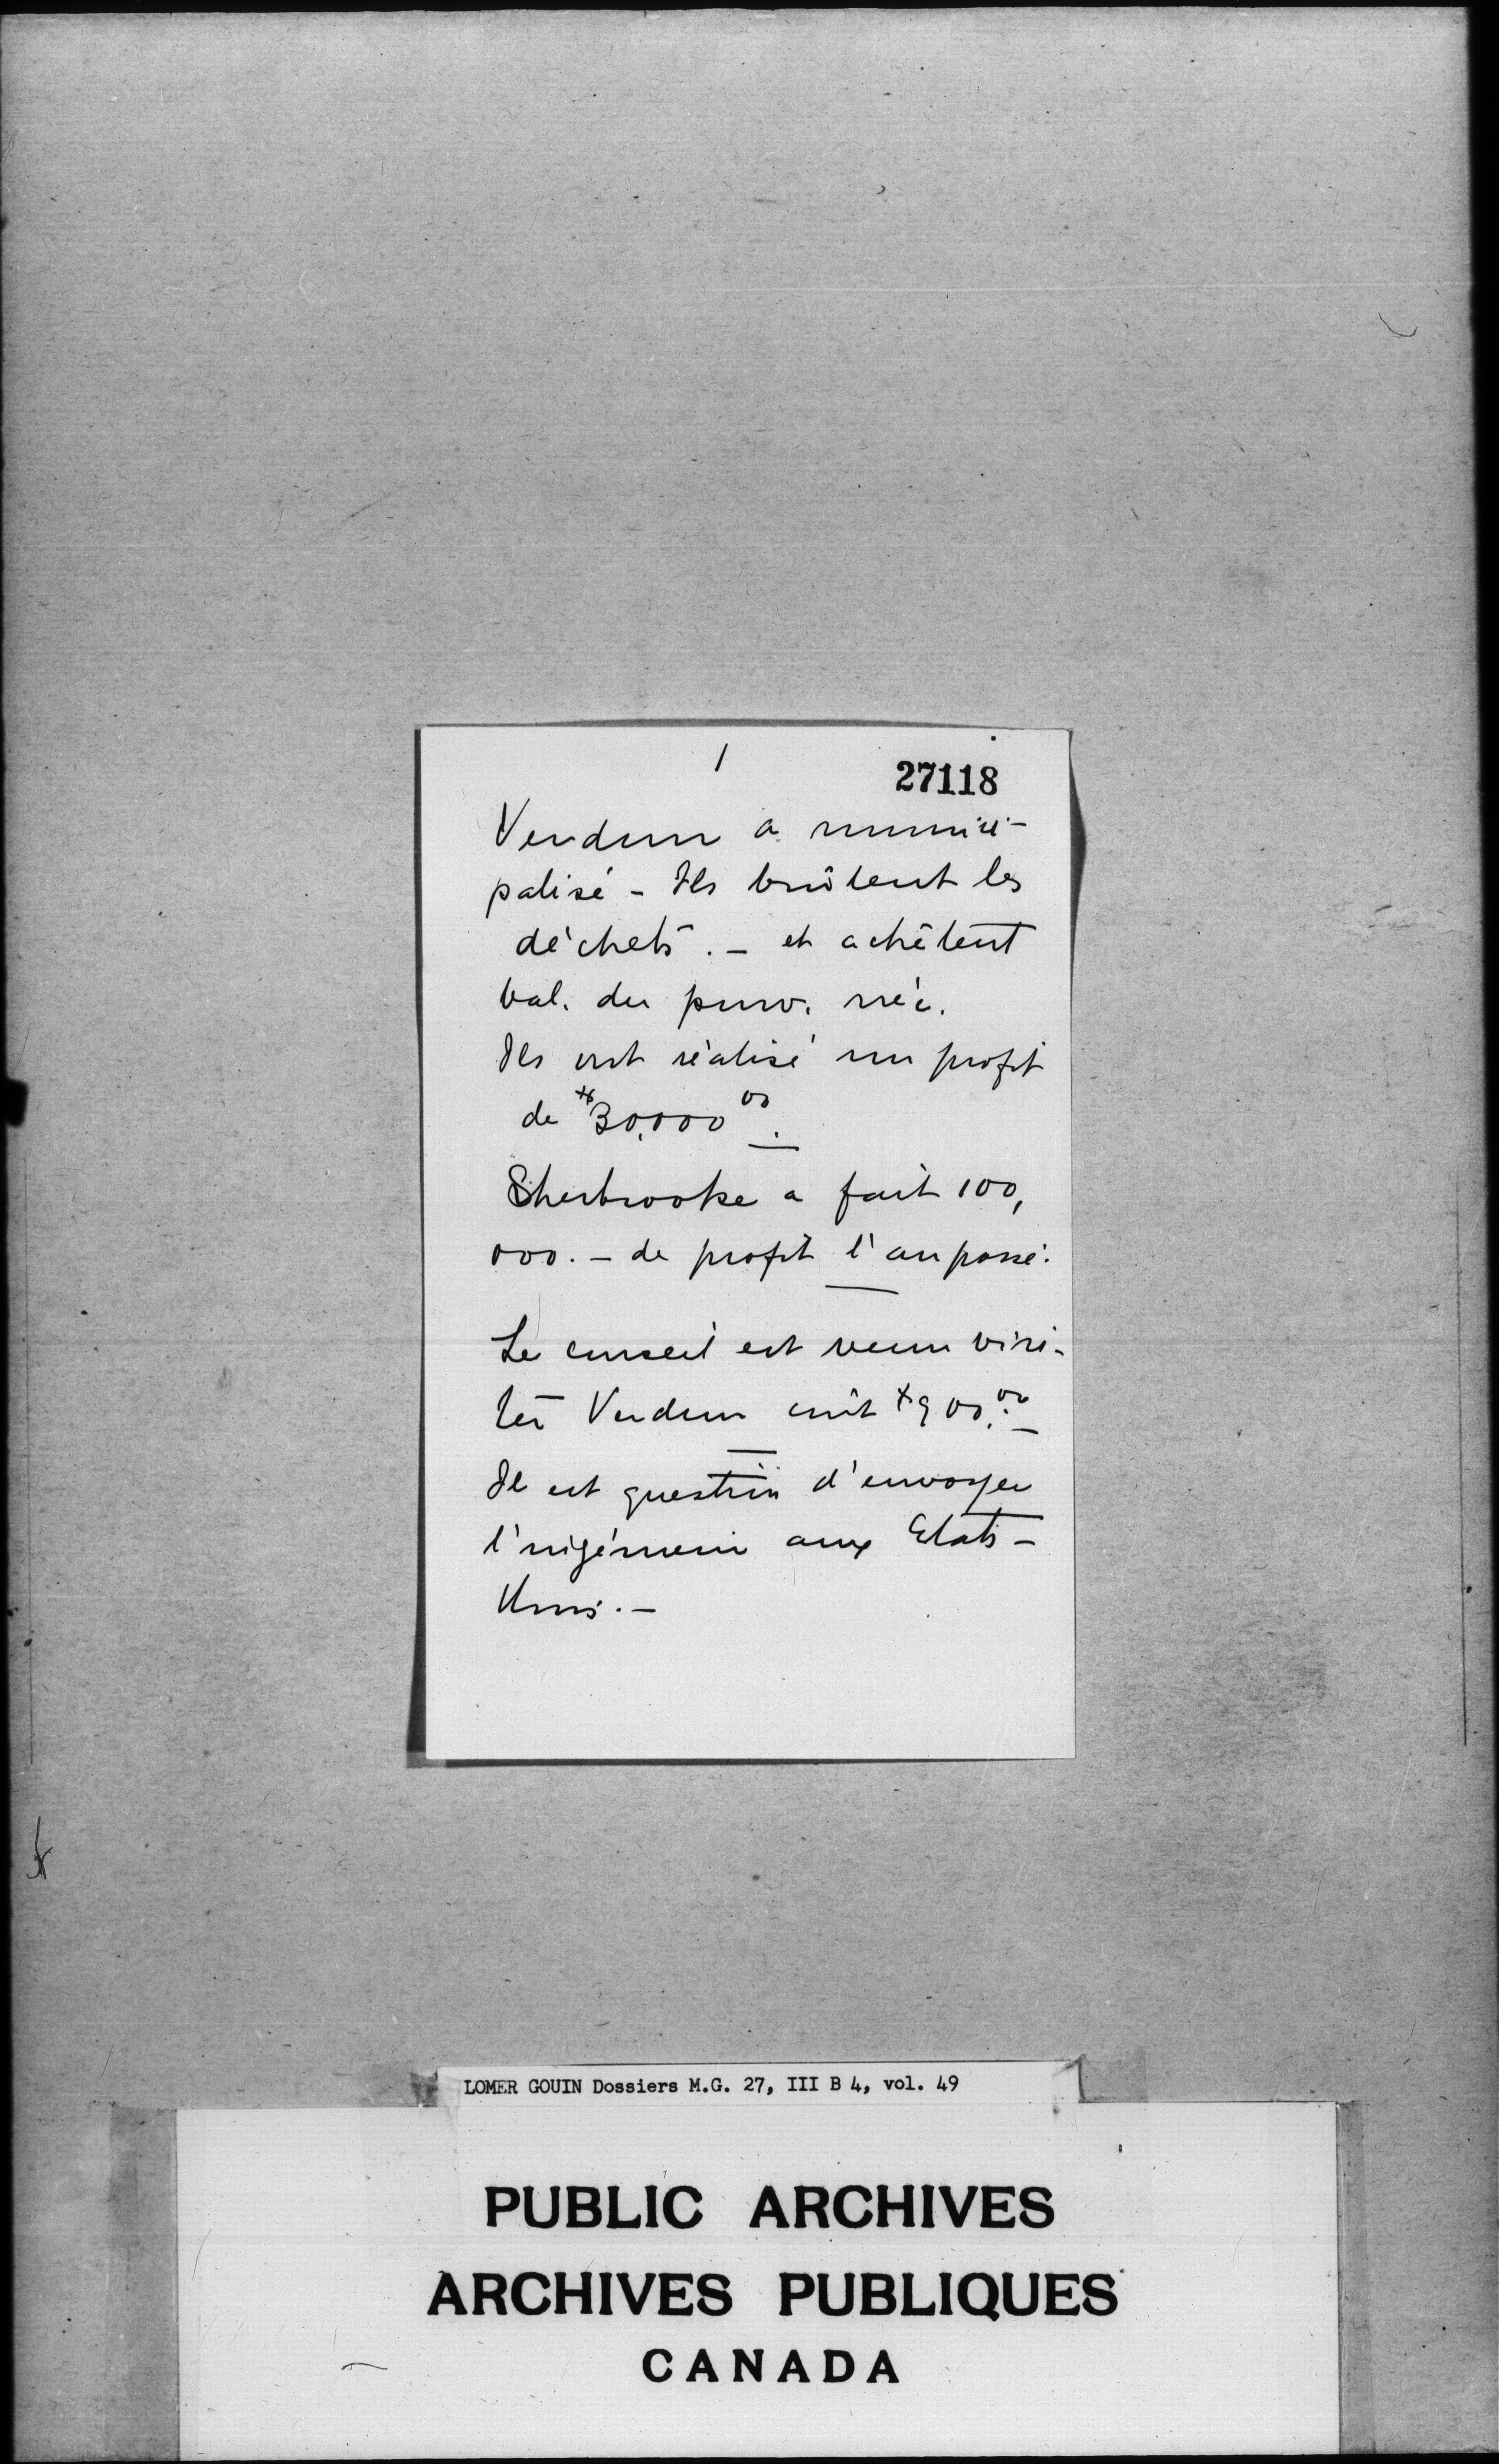 1
27118
Verdun a munici-
palisé - Ils brûlent les
déchets. - et achètent
bal. du pouv. néc.
Ils ont réalisé un profit
de $30,000 00.
Sherbrooke a fait 100,
000. - de profit l'an passé.
Le conseil est venu visi-
ter Verdun coût $900.00
Il est question d'envoyer
l'ingénieur aux Etats-
Unis. -
LOMER GOUIN Dossiers M.G. 27, III B 4, vol. 49
PUBLIC ARCHIVES
ARCHIVES PUBLIQUES
CANADA